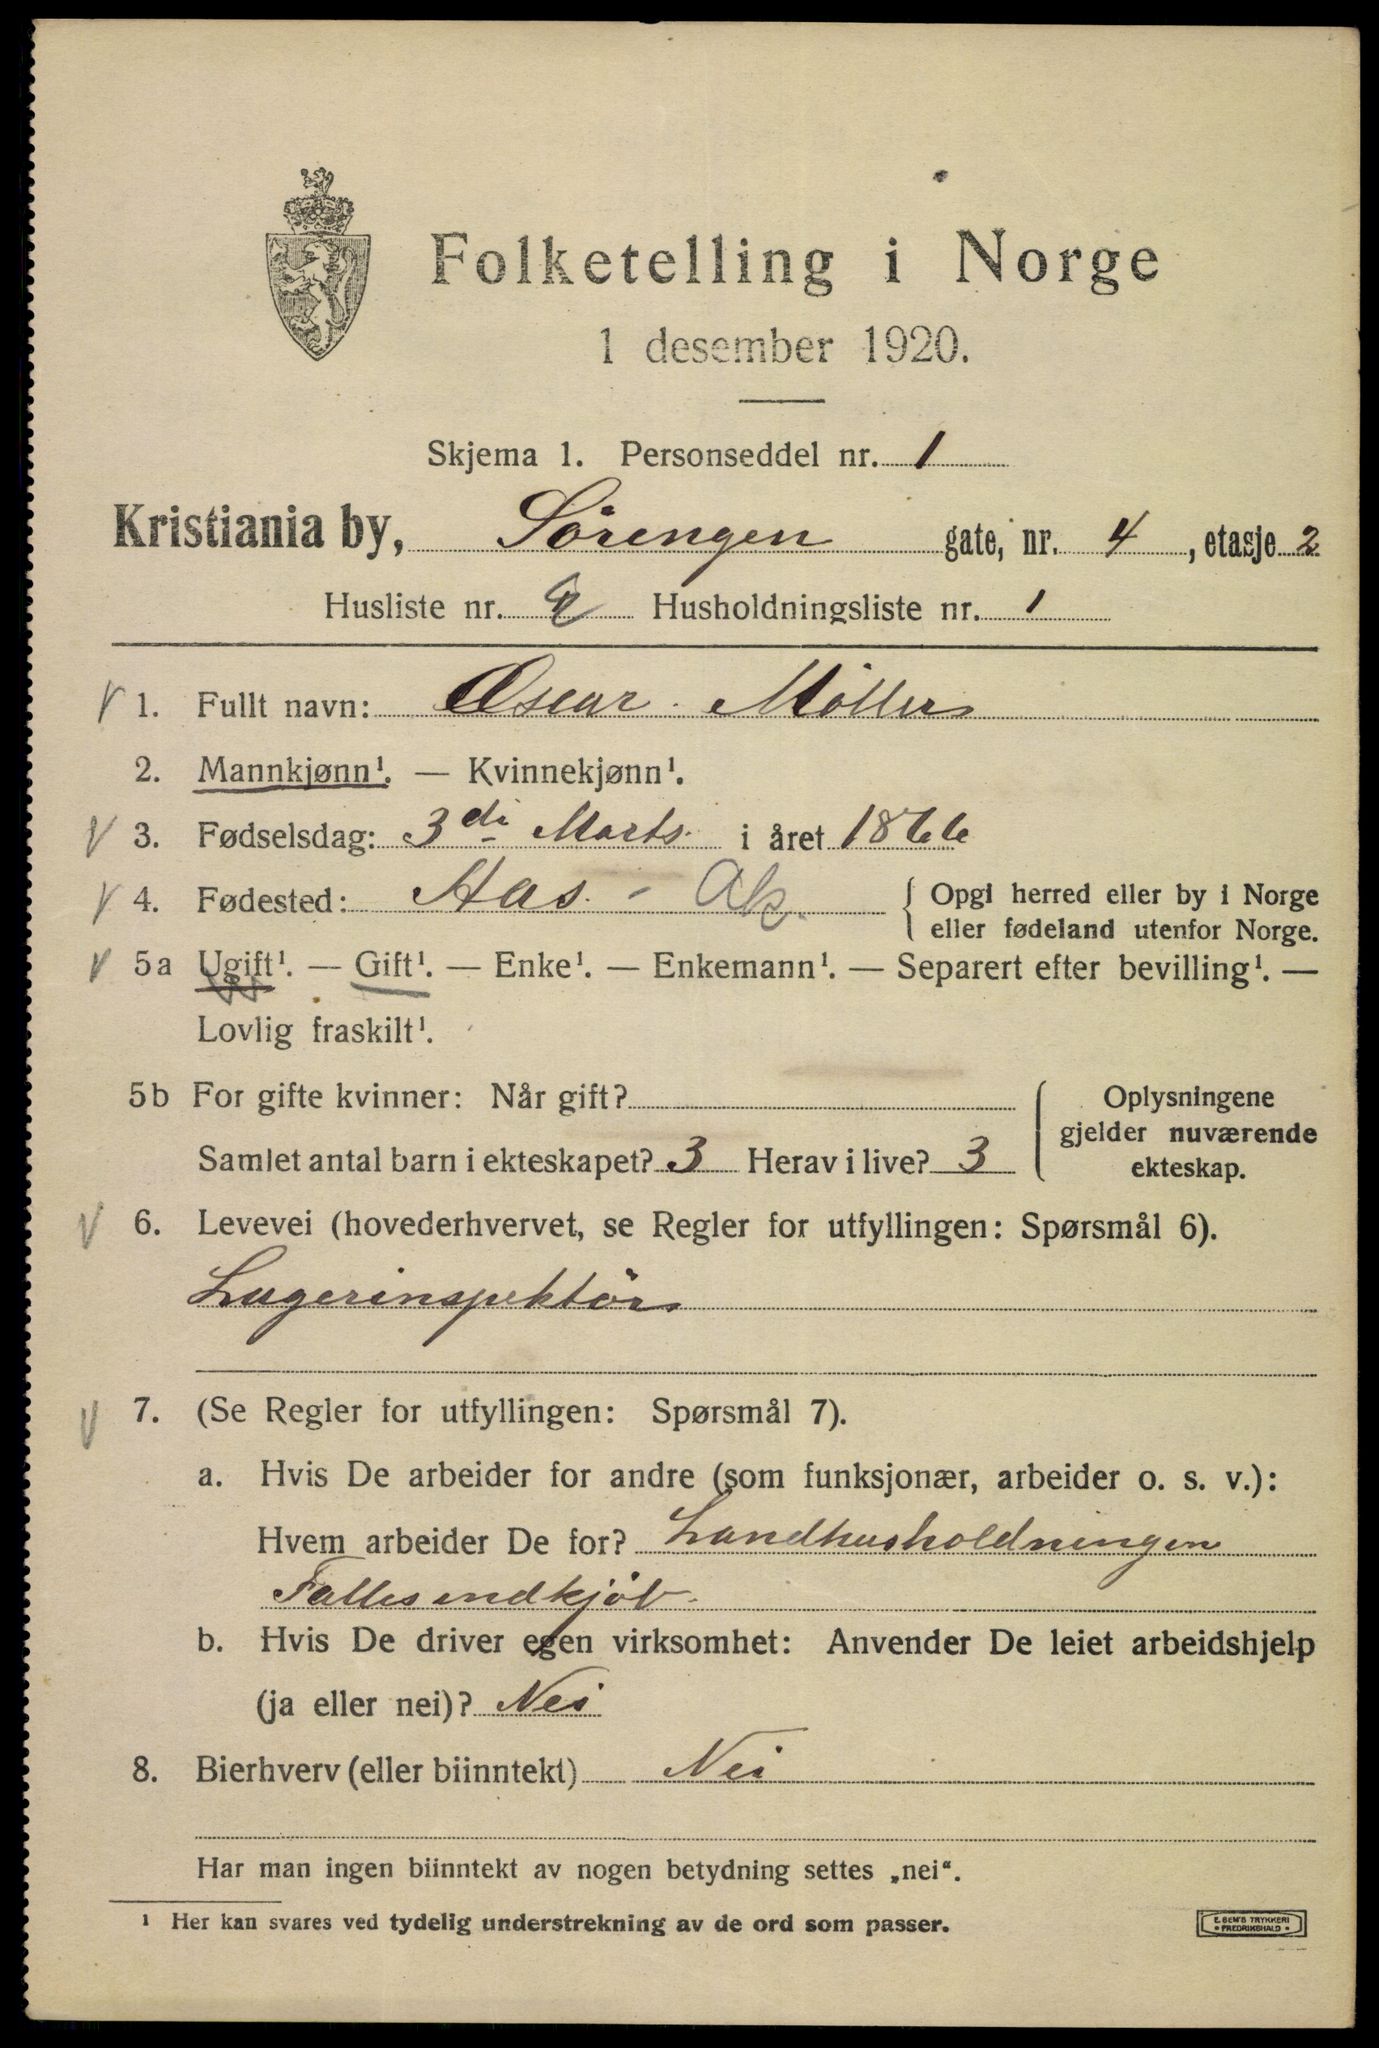 Folketelling i Norge
1 desember 1920.
Skjema 1. Personseddel nr. 1
Kristiania by, Sörengen gate, nr. 4, etasje 2
Husliste nr. Husholdningsliste nr. 1
1. Fullt navn: Oscar Möller
2. Mannkjønn¹. — Kvinnekjønn¹.
3. Fødselsdag: 3di Marts i året 1866
4. Fødested: Aas - Ak. { Opgi herred eller by i Norge
eller fødeland utenfor Norge.
5a Ugift¹. — Gift¹. — Enke¹. — Enkemann¹. — Separert efter bevilling¹. —
Lovlig fraskilt¹.
5b For gifte kvinner: Når gift? Oplysningene
gjelder nuværende
Samlet antal barn i ekteskapet? 3 Herav i live? 3 ekteskap.
6. Levevei (hovederhvervet, se Regler for utfyllingen: Spørsmål 6).
Lagerinspektör
7. (Se Regler for utfyllingen: Spørsmål 7).
a. Hvis De arbeider for andre (som funksjonær, arbeider o. s. v.):
Hvem arbeider De for? Landhusholdningen
Fælles indkjöb.
b. Hvis De driver egen virksomhet: Anvender De leiet arbeidshjelp
(ja eller nei)? Nei
8. Bierhverv (eller biinntekt) Nei
Har man ingen biinntekt av nogen betydning settes „nei“.
¹ Her kan svares ved tydelig understrekning av de ord som passer.
E. SEM'S TRYKKERI
• FREDRIKSHALD •